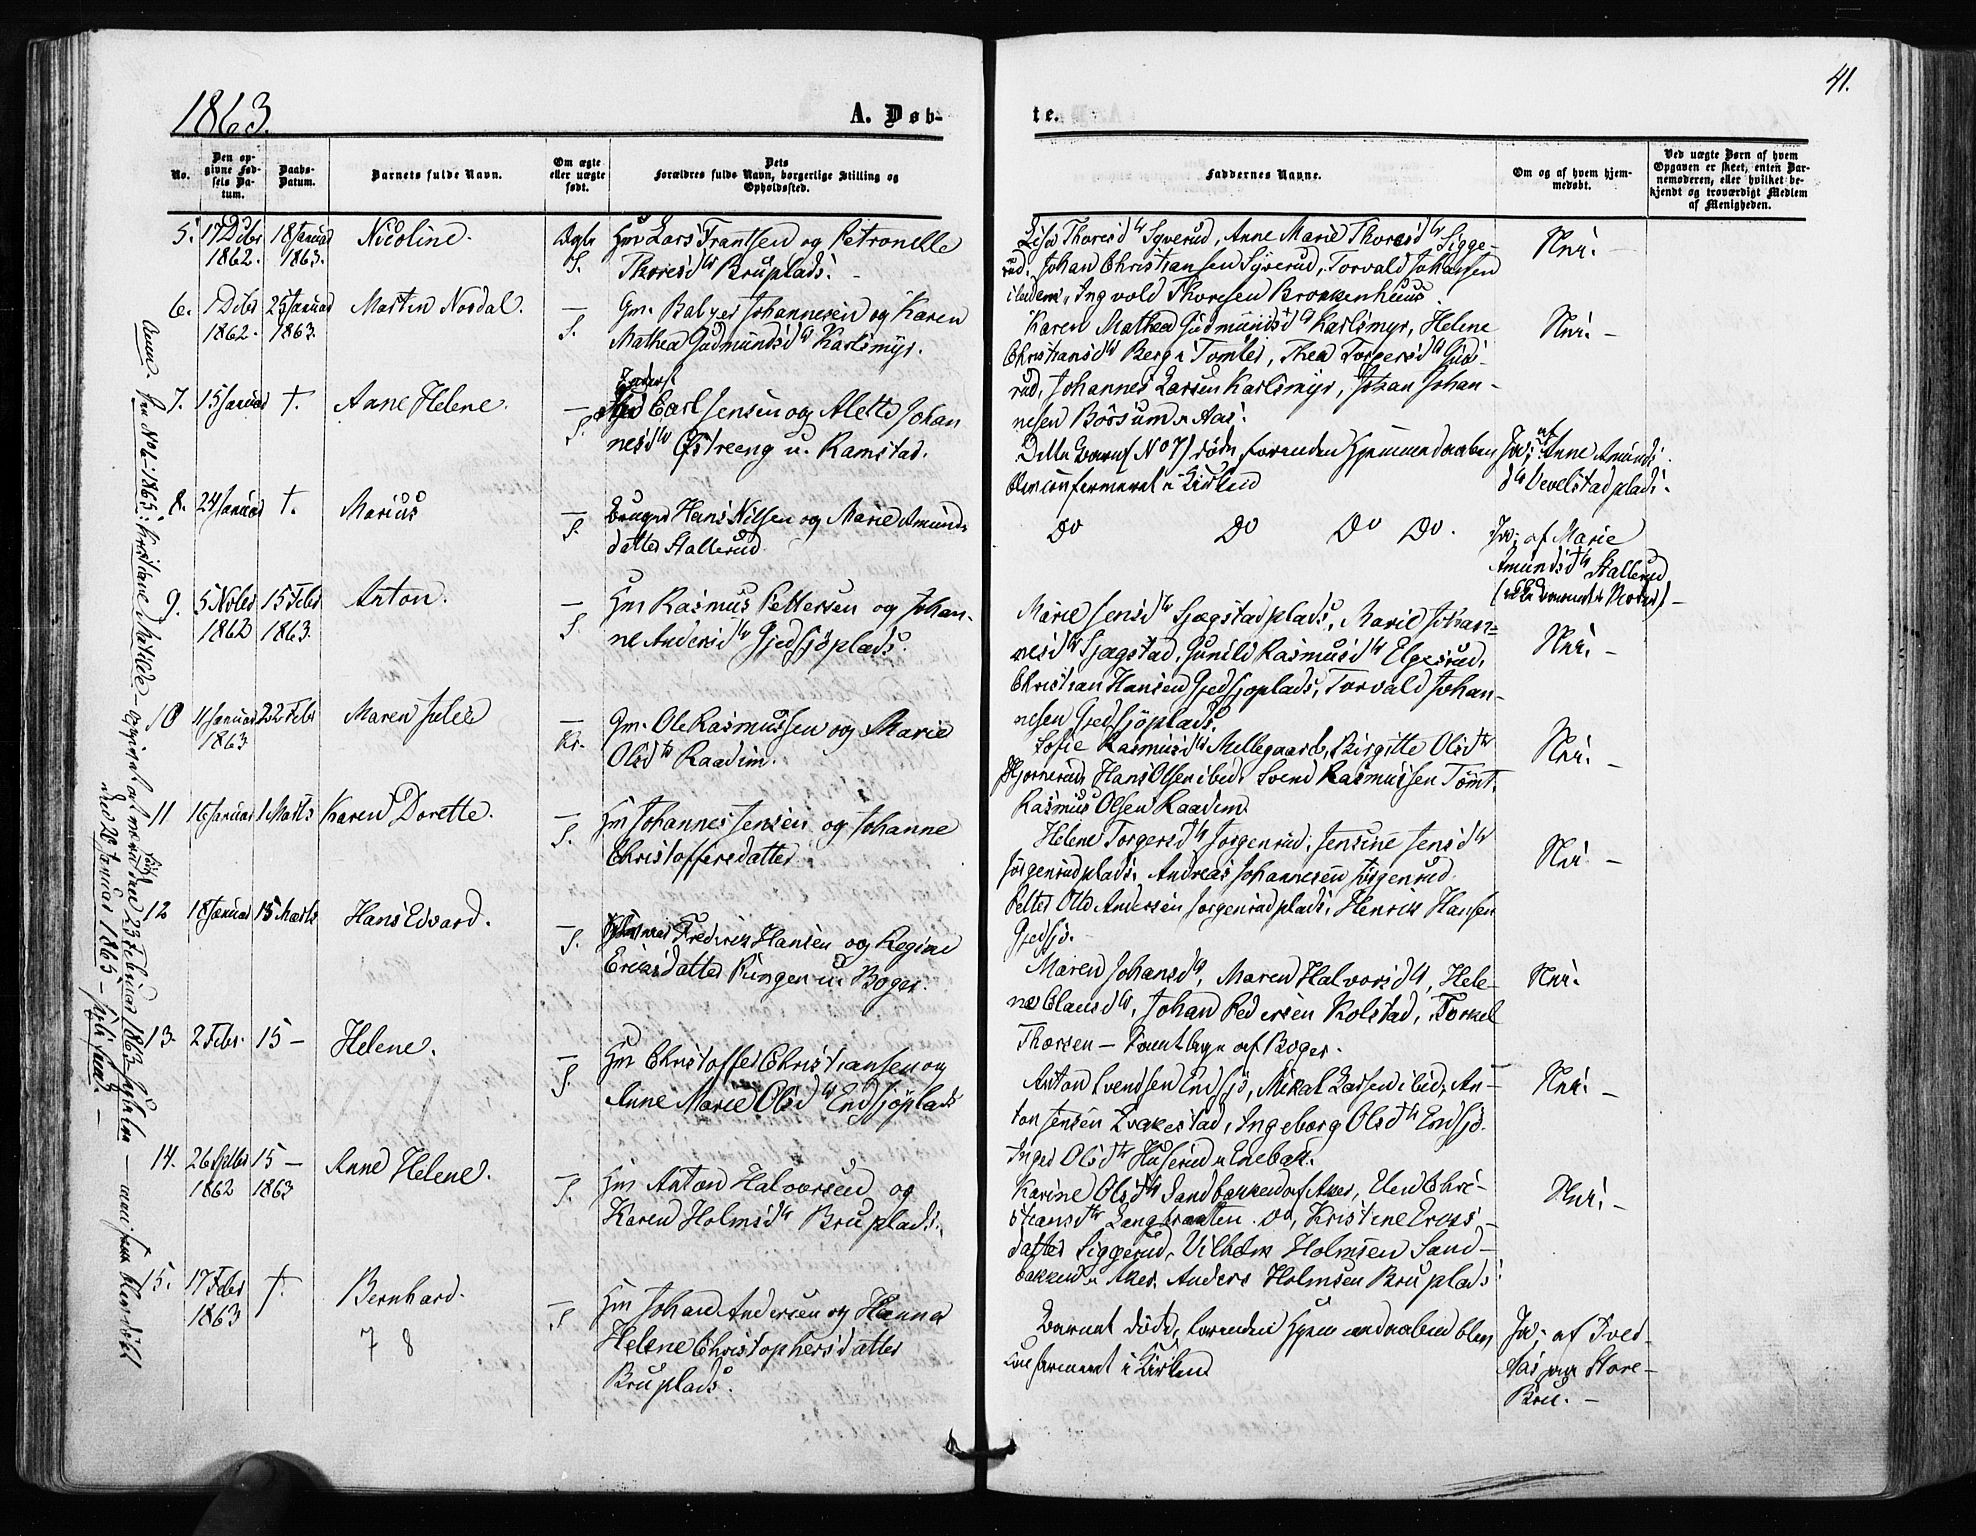 1863.
A. Døb-
te.
41.
No.
Den op-
givne Fød-
sels Da-
tum.
Daabs-
Datum.
Barnets fulde Navn.
Om ægte
eller uægte
født.
Dets
Forældres fulde Navn, borgerlige Stilling og
Opholdssted.
Faddernes Navne.
Om og af hvem hjem-
medøbt.
Ved uægte Børn af hvem
Opgaven er skeet, enten Bar-
nemoderen, eller hvilket be-
kjendt og troværdigt Medlem
af Menigheden.
5. 17 Debr 18 Januar Nicoline. Ægte Hm Lars Frantsen og Petronelle
1862. 1863. S. Thoresdtr Bruplads. -
Thoresdtr Syverud, Anne Marie Thoresdtr Sigge-
rud, Johan Christiansen Syverud, Torvald Johansen
ibidem, Ingvold Thoresen Brokkenhuus.
Nei. -
6. 1 Debr 25 Januar Martin Nordal. - Gm. Johannesen og Karen
1862. 1863. S. Mathea Gudmundsdtr Karlsmyr.
Karen Mathea Gudmundsdtr Karlsmyr, Helene
Christiansdtr Berg i Tomter, Thea Torgersdtr
rud, Johannes Larsen Karlsmyr, Johan Johan-
nesen Børsum i Aas.
Nei. -
7. 15 Januar †. Anne Helene. - Carl Jensen og Alette Johan
S. nesdtr Østreeng u. Ramstad.
Dette Barn (No 7) døde, forinden Hjemmedaaben
blev confirmeret i Kirken
Ja, af Anne Amunds
dtr Vevelstadplads.
8. 24 Januar †. Marius - Bruger Hans Nilsen og Marie Amunds
S. datter Stallerud.
Do Do Do Do.
Ja, af Marie
Amundsdtr Stallerud
(Barnets Moder) -
9. 5 Novbr 15 Febr Anton. - Hm Rasmus Pettersen og Johan-
1862 1863. S. ne Andersdtr Gjedsjøplads.
Marie Jensdtr Sjægstadplads, Marie Johan-
nesdtr Sjægstad, Gunild Rasmusdtr Elgesrud,
Christian Hansen Gjedsjøplads, Torvald Johan-
nesen Gjedsjøplads.
Nei. -
10 11 Januar 22 Febr Maren Julie - Gm. Ole Rasmussen og Marie
1863 Kr. Olsdtr Raadim.
Sofie Rasmusdtr Mellegaard, Birgitte Olsdtr
Hans Olsen ibid. Svend Rasmussen Tømt.
Rasmus Olsen Raadim.
Nei. -
11 16 Januar 1 Marts Karen Dorette. - Hm Johannes Jensen og Johanne
S. Christoffersdatter
Helene Torgersdtr Jørgenrud, Jensine Jensdtr
Jørgenrudplads, Andreas Johannesen Jørgenrud.
Petter Otto Andersen Jørgenrudplads, Henrik Hansen
Gjedsjø.
Nei. -
12 18 Januar 15 Marts Hans Edvard. - Frederik Hansen og Regine
S. Eriksdatter Ringen u. Boger.
Maren Johansdtr, Maren Halvorsdtr, Hele-
ne Clausdtr, Johan Pedersen Kolstad, Torkel
Thorsen - samtlige af Boger.
Nei.
13. 2 Febr. 15 - Helene. - Hm Christoffer Christiansen og
S. Anne Marie Olsdtr Endsjøplads
Anton Svendsen Endsjø, Mikal Larsen ibid, An-
ton Jensen Kvakestad, Ingeborg Olsdtr Endsjø.
Inger Olsdtr Huserud i Enebak.
Nei. -
14. 26 Septbr 15 - Anne Helene. - Hm Anton Halvorsen og
1862 1863 S. Karen Holmsdtr Bruplads.
Karine Olsdtr Sandbakken af Aker, Elen Chri-
stiansdtr Langbraaten. Do, Kristine Eriks-
datter Siggerud, Vilhelm Holmsen Sand-
bakken i Aker. Anders Holmsen Bruplads.
Nei. -
15. 17 Febr †. Bernhard. - Hm Johan Andersen og Hanna
1863 S. Helene Christophersdatter
7 8 Bruplads.
Barnet døde, forinden Hjemmedaaben blev
confirmeret i Kirken
Ja, af
paa Store-
Bru. -
Anm. No 1863: Kristiane Matilde - 23 Februar 1863
20 Januar 1863